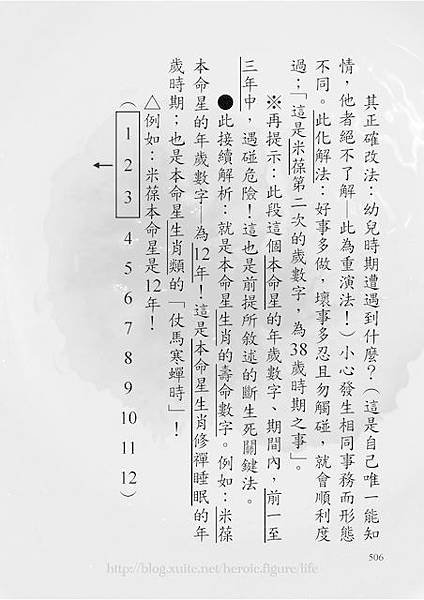 其正確改法：幼兒時期遭遇到什麼？（這是自己唯一能知
情，他者絕不了解—此為重演法！）小心發生相同事務而形態
不同。此化解法：好事多做，壞事多忍且勿觸碰，就會順利度
過；「這是米葆第二次的歲數字，為38歲時期之事」。
※再提示：此段這個本命星的年歲數字、期間內，前一至
三年中，遇碰危險！這也是前提所敘述的斷生死關鍵法。
●此接續解析：就是本命星生肖的壽命數字。例如：米葆
本命星的年歲數字—為12年！這是本命星生肖修禪睡眠的年
歲時期；也是本命星生肖類的「仗馬寒蟬時」！
△例如：米葆本命星是12年！
（1 2 3 4 5 6 7 8 9 10 11 12）
506
http://blog.xuite.net/heroic.figure/life